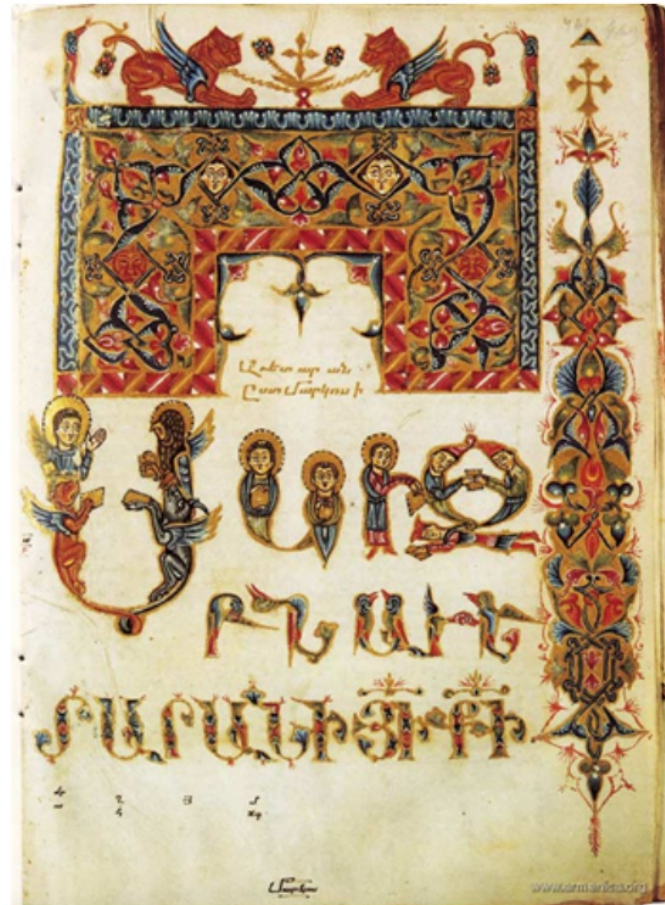 Աւետարան
Ըստ Մարկոսի
ՍԿԻԶ
ԲՆ ԱՒԵ
ՏԱՐԱՆԻ ՅԻ ՔԻ
Մարկոս
www.armenica.org